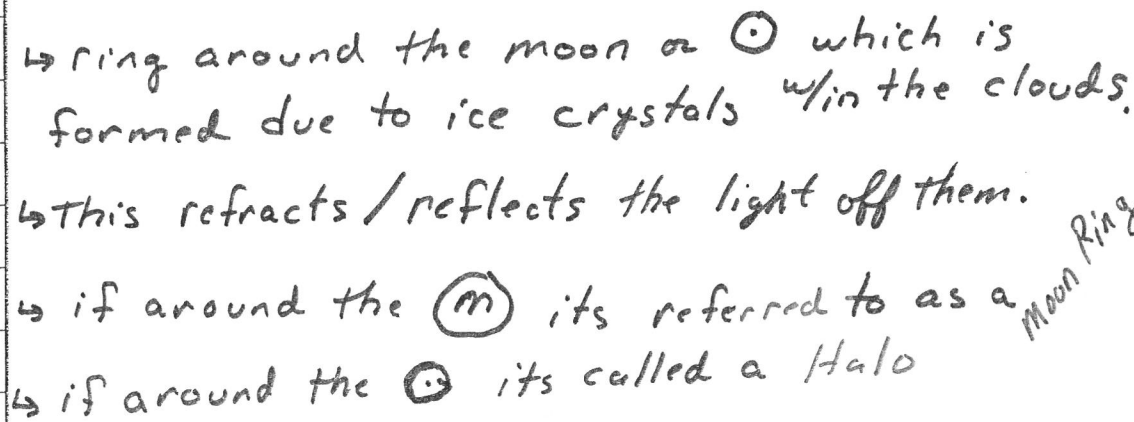 ↳ ring around the moon or ⊙ which is
formed due to ice crystals w/in the clouds.
↳ This refracts/reflects the light off them.
↳ if around the ⓜ its referred to as a Moon Ring
↳ if around the ⊙ its called a Halo